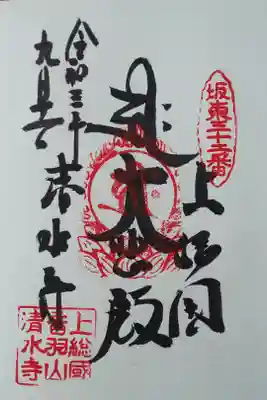 坂東三十二番
上総国
大悲殿
清水寺
令和三年
九月
上總國
音羽山
清水寺